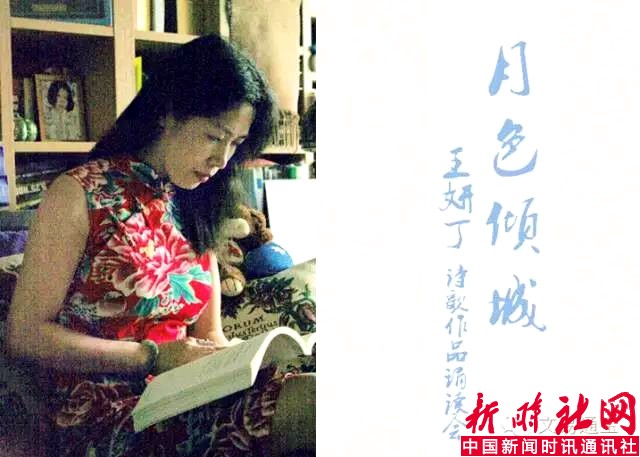 月色倾城
王妍丁
诗歌作品诵读会
ORUM
新时社网
中国新闻时讯通讯社